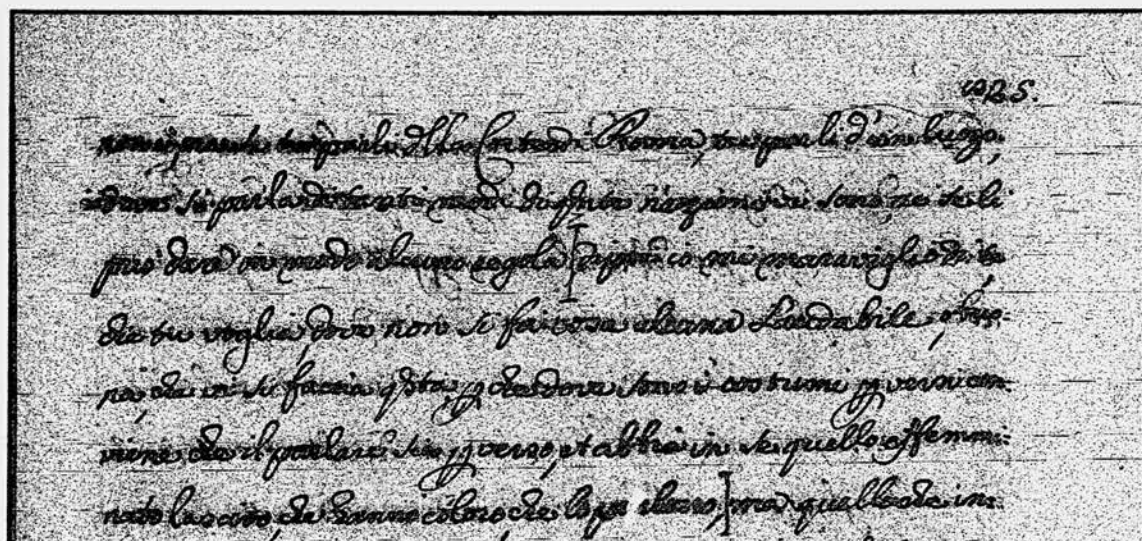 325.
tu parli della Corte di Roma, tu parli d'un luogo,
dove si parla di tanti modi di qnte nazioni vi sono, ne se li
può dare in modo alcuno regola [dipoi io mi maraviglio di te
che tu voglia, dove non si fa cosa alcuna Laudabile, o buo:
na, che vi si faccia qsta, pche dove sono i costumi pversi con:
viene che il parlare sia pverso, et abbia in se quello effemmi:
nato lascivo che hanno coloro che lo parlano,] ma quello che in: